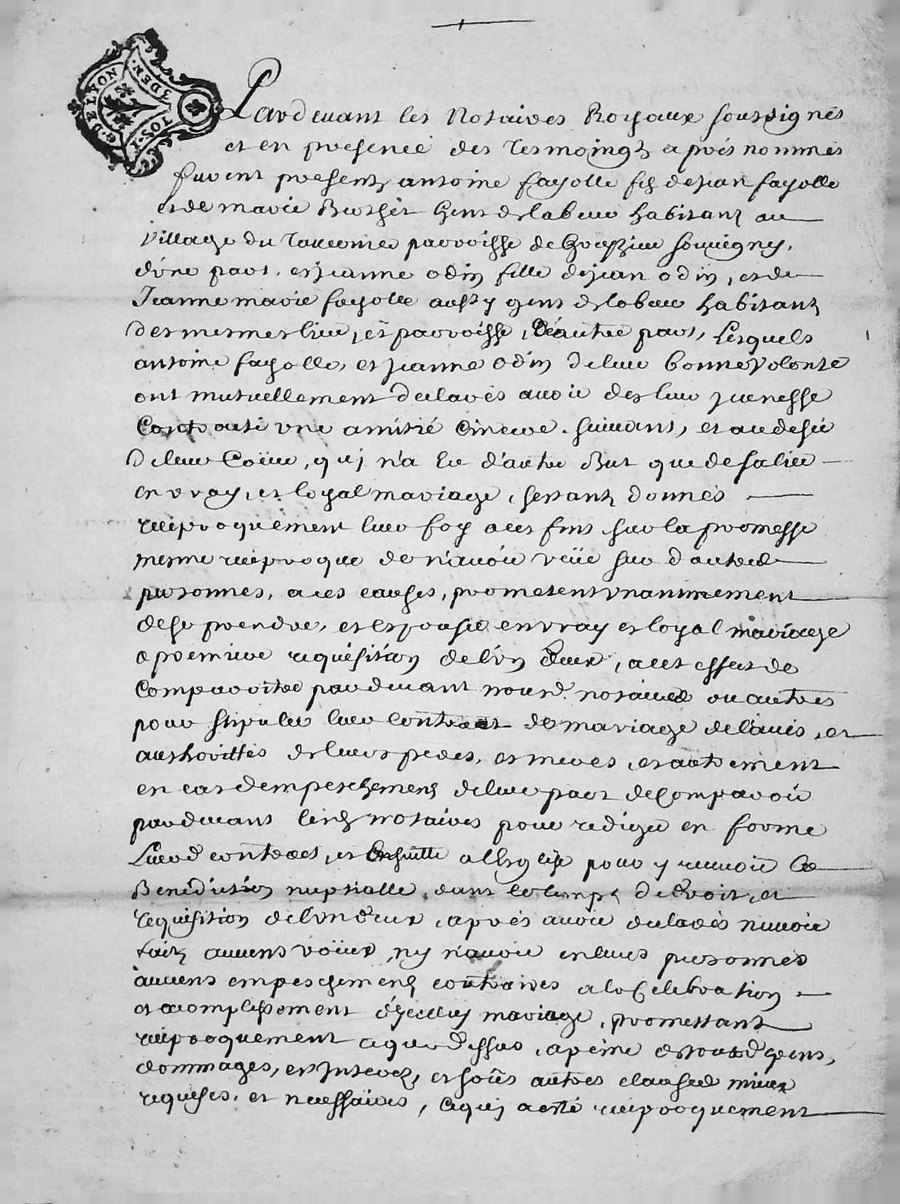 G. DE LYON
TOS. 1
3 DEN.
Pardevant les Notaires Royaux soussignes
et en presence des Tesmoingts apres nommés
furent presents antoine fayolle fils de jean fayolle
et de marie Berthet gens de labeur habitants au
village du parroisse de souvigny,
d'une part, et jeanne odin fille de jean odin, et de
Jeanne marie fayolle aussy gens de labeur habitants
des mesmes lieu, et parroisse, d'autre part, Lesquels
antoine fayolle, et jeanne odin de leur bonne volonté
ont mutuellement declarés avoir des leur jeunesse
Contracté une amitié Cincere suivant, et au desir
de leur Cœur, qui n'a eu d'autre But que de s'alier
en vray, et loyal mariage, s'estants donnés
reciproquement leur foy a ces fins sur la promesse
mesme reciproque de n'avoir veüe sur d'autres
personnes, a ces causes, prometent unanimement
de se prendre, et Espouser en vray et loyal mariage
a premiere requisition de l'un d'eux, a cet effect de
Comparoitre pardevant nousd. notaires ou autres
pour stipuler leur contract de mariage de l'avis, et
authorittés de leurs peres, et meres, et autrement
en cas d'empeschement de leur part de Comparoir
pardevant lesd. notaires pour rediger en forme
Leurd. contract, et Ensuitte a l'Esglise pour y recevoir La
Benediction nuptialle, dans le temps de droit, et
requisition de l'un d'eux, apres avoir declarés n'avoir
faits aucuns vœux, ny n'avoir en leurs personnes
aucuns empeschements contraires a la Celebration
et acomplissement d'jcelluy mariage, promettant
reciproquement ce que dessus, a peine de tous depens,
dommages, et Interets, et sous autres clauses mieux
requises, et necessaires, ce qui a esté reciproquement